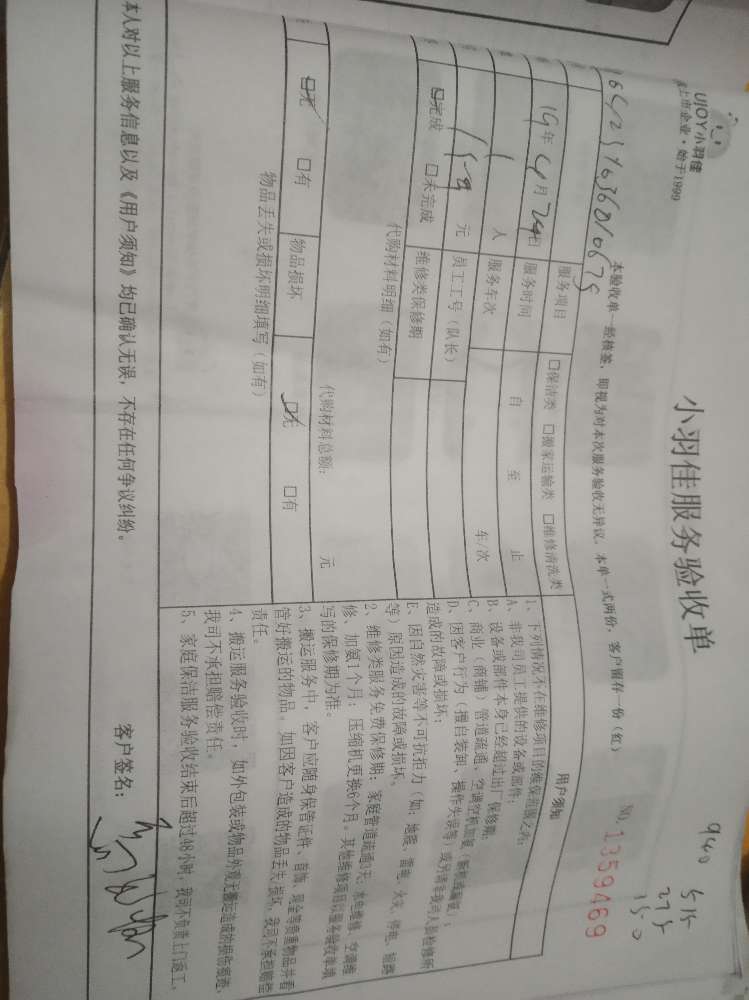 UJOY小羽佳
上市企业·始于1999
小羽佳服务验收单
940 515
275
150
本验收单一经核签，即视为对本次服务验收无异议，本单一式两份，客户留存一份（红）
NO. 1359469
服务项目 □保洁类 □搬家运输类 □维修清洗类
19年4月24日 服务时间 自 至 止
1人 服务车次 车/次
元 员工工号（队长）
☑完成 □未完成 维修类保修期
代购材料明细（如有）
代购材料总额： 元
☑无 □有 物品损坏 ☑无 □有
物品丢失或损坏明细填写（如有）
用户须知
1、下列情况不在维修项目的维保范围之内：
A、非我司员工提供的设备或部件；
B、设备或部件本身已经超过出厂保修期；
C、商业（商铺）管道疏通、空调空机加氨（新机或漏氨）；
D、因客户行为（擅自装卸、操作失误等）或另请非我司人员检修所
造成的故障或损坏；
E、因自然灾害等不可抗拒力（如：地震、雷电、火灾、停电、短路
等）原因造成的故障或损坏。
2、维修类服务免费保修期：家庭管道疏通3天；水电维修、空调维
修、加氨1个月；压缩机更换6个月。其他维修项目以服务验收单填
写的保修期为准。
3、搬运服务中，客户应随身保管证件、首饰、现金等贵重物品并看
管好搬运的物品。如因客户造成的物品丢失/损坏，我司不承担赔偿
责任。
4、搬运服务验收时，如外包装或物品外观无搬运造成的损伤痕迹，
我司不承担赔偿责任。
5、家庭保洁服务验收结束后超过48小时，我司不负责上门返工。
本人对以上服务信息以及《用户须知》均已确认无误，不存在任何争议纠纷。
客户签名：